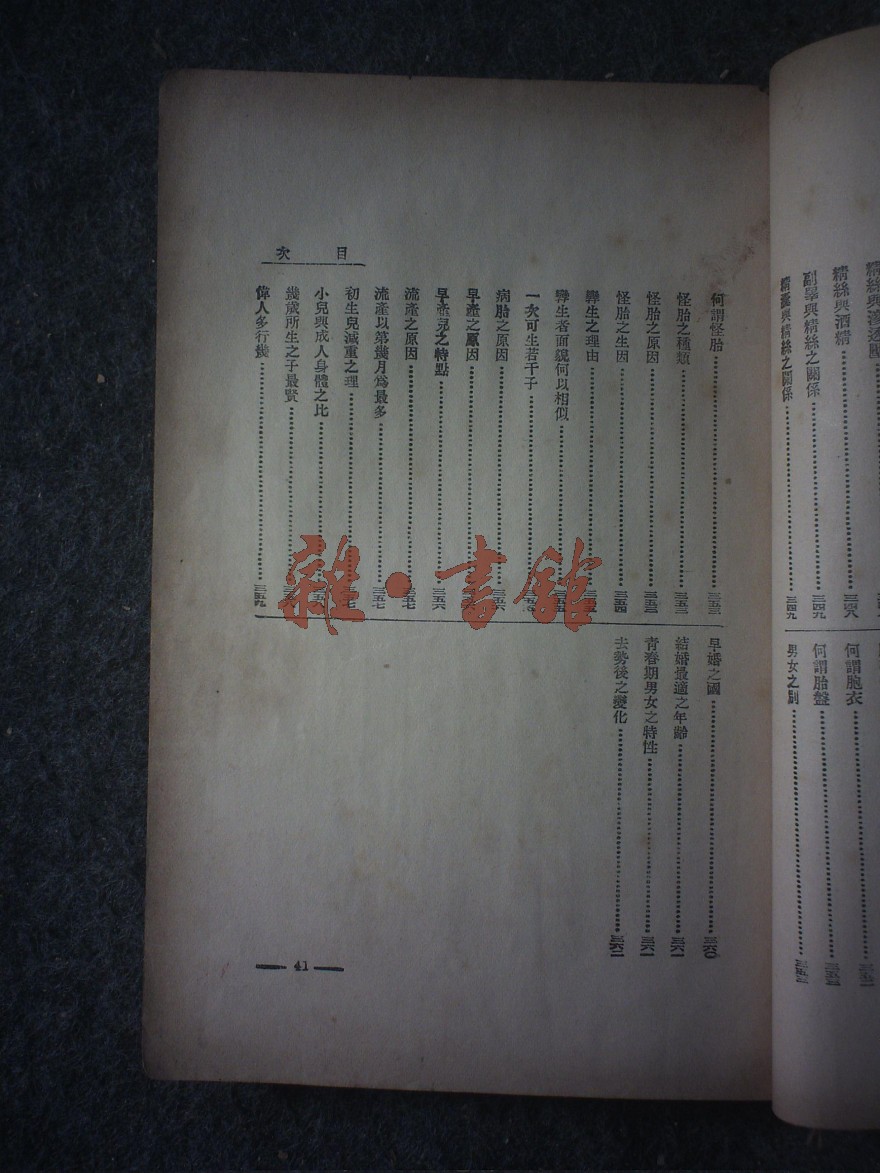 精絲與酒精……三四八
副睾與精絲之關係……三四九
精蟲與精絲之關係……三四九
何謂胞衣
何謂胎盤
男女之別
目次
何謂怪胎……三五三
怪胎之種類……三五三
怪胎之原因……三五三
怪胎之生因……三五四
孿生之理由
孿生者面貌何以相似
一次可生若干子
病胎之原因……三五六
早產之原因
早產兒之特點……三五六
流產之原因……三五七
流產以第幾月爲最多……三五七
初生兒減重之理
小兒與成人身體之比
幾歲所生之子最賢
偉人多行幾……三五九
早婚之國……三六〇
結婚最適之年齡……三六一
青春期男女之特性……三六一
去勢後之變化……三六二
41
雜·書館